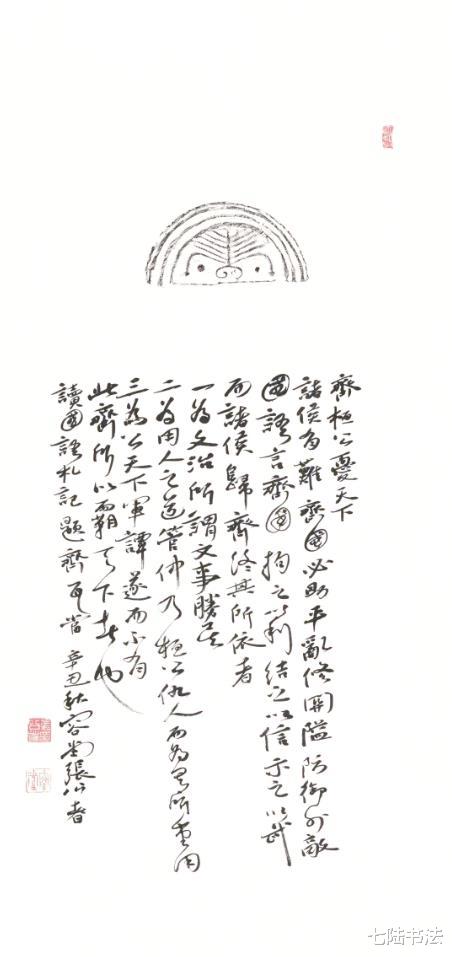 齊桓公憂天下
諸侯有難齊國必助平亂修關隘防御外敵
國語言齊國拘之以利結之以信示之以武
而諸侯歸齊終其所依者
一為文治所謂文事勝矣
二為用人之道管仲乃桓公仇人而為其所重用
三為公天下軍譚遂而不有
此齊所以霸天下者也
讀國語札記題齊瓦當辛丑秋容堂張公者
七陆书法